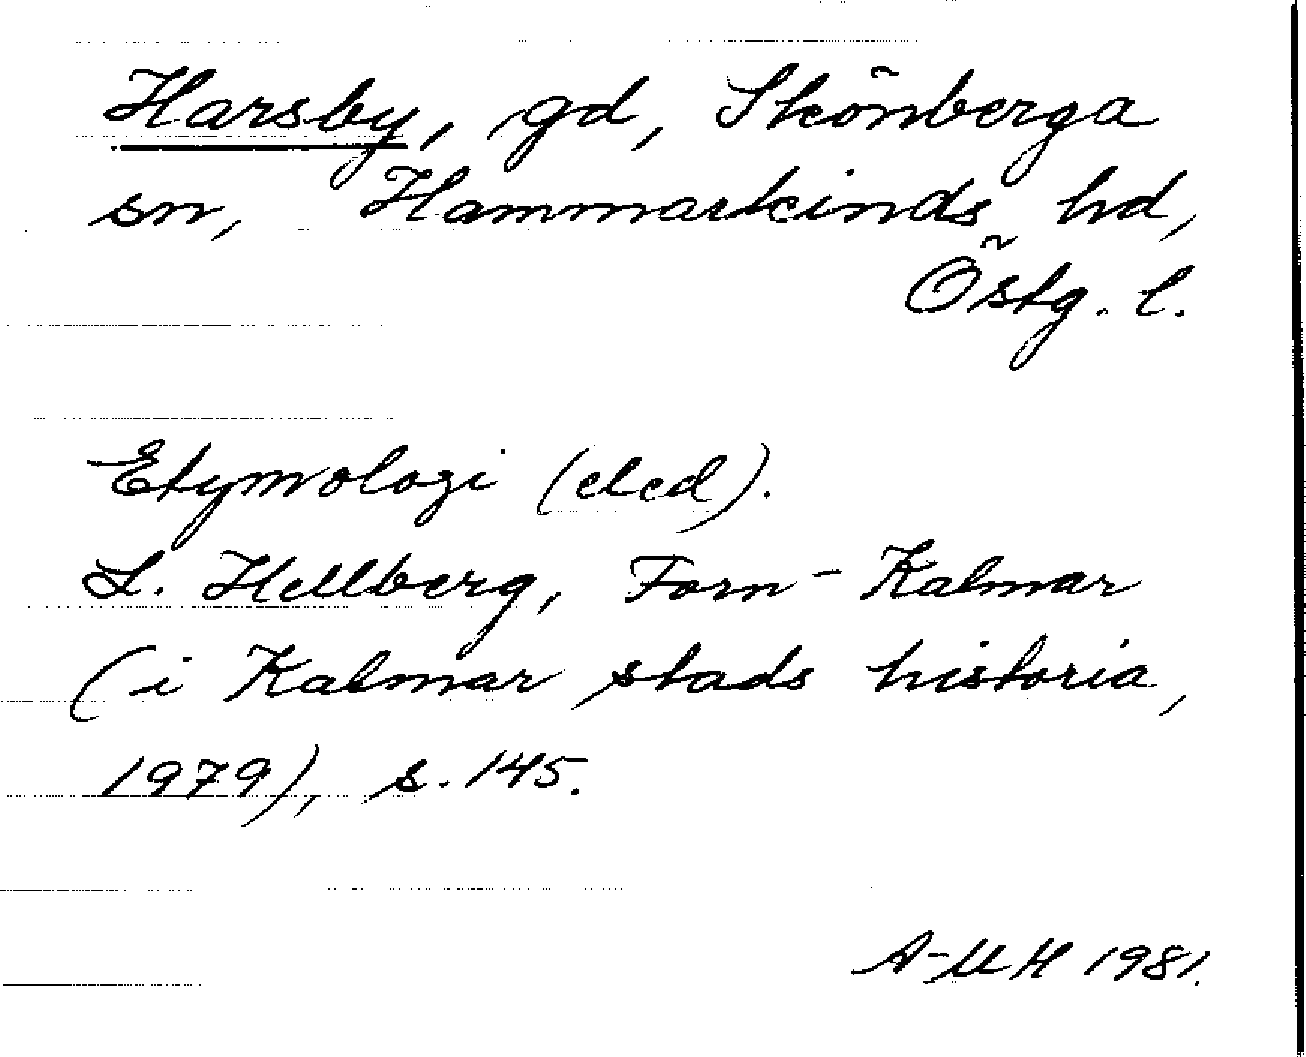 Harsby, gd, Skönberga
sn, Hammarkinds hd,
Östg. l.
Etymologi (eled).
L. Hellberg, Forn-Kalmar
(i Kalmar stads historia,
1979), s. 145.
A-MH 1981.